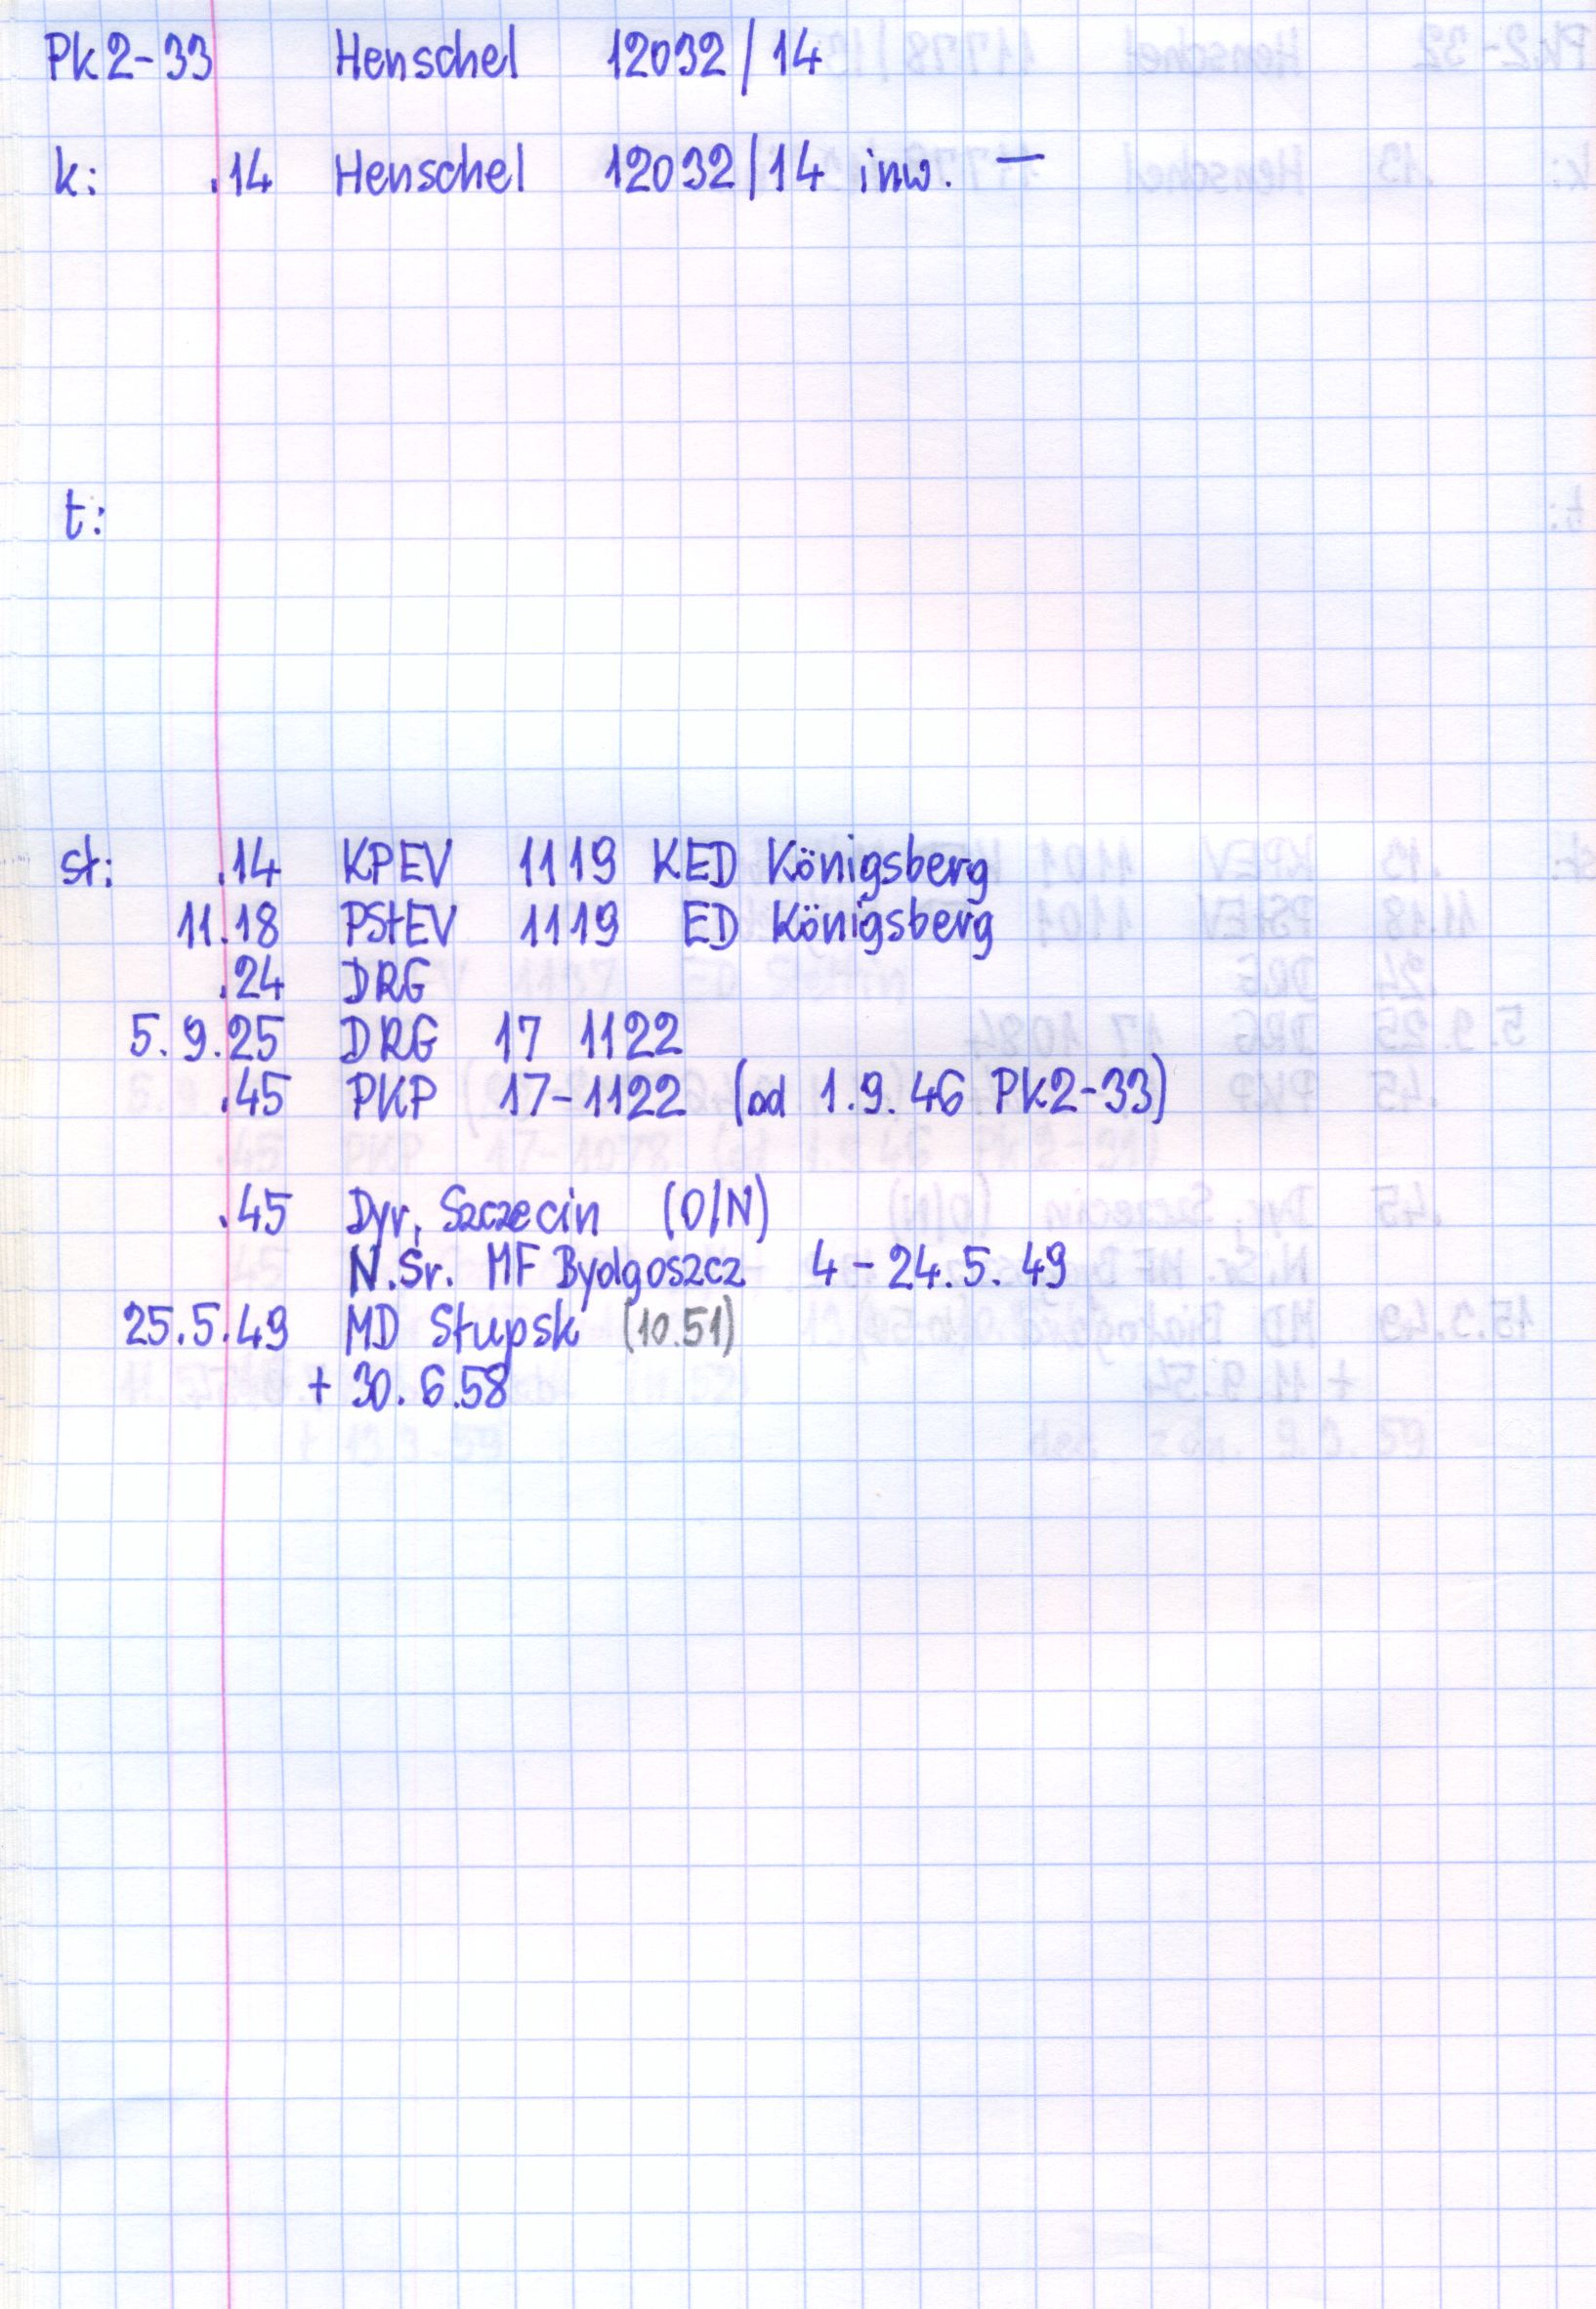 Pk2-33 Henschel 12032/14
k: .14 Henschel 12032/14 inw. —
t:
st: .14 KPEV 1119 KED Königsberg
11.18 PStEV 1119 ED Königsberg
.24 DRG
5.9.25 DRG 17 1122
.45 PKP 17-1122 (od 1.9.46 Pk2-33)
.45 Dyr. Szczecin (O/N)
N.Śr. MF Bydgoszcz 4-24.5.49
25.5.49 MD Słupsk (10.51)
+ 30.6.58